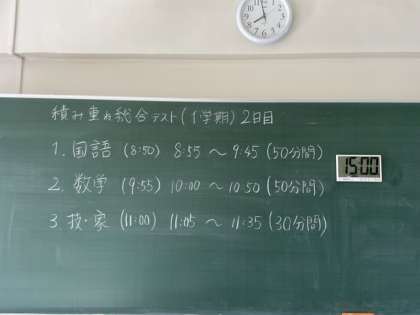 積み重ね総合テスト(1学期) 2日目
1. 国語 (8:50) 8:55 ～ 9:45 (50分間)
15:00
2. 数学 (9:55) 10:00 ～ 10:50 (50分間)
3 技・家 (11:00) 11:05 ～ 11:35 (30分間)